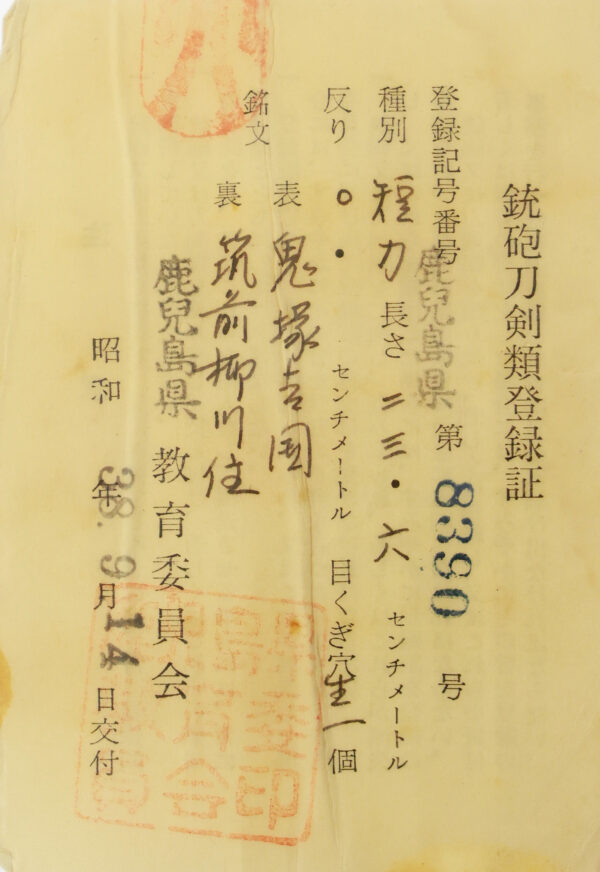 銃砲刀剣類登録証
登録記号番号 鹿児島県 第 8390 号
種別 短刀 長さ 二三・六 センチメートル
反り 〇・ センチメートル 目くぎ穴 生一 個
銘文 表 鬼塚吉国
裏 筑前柳川住
鹿児島県 教育委員会
昭和 38年 9月 14日交付